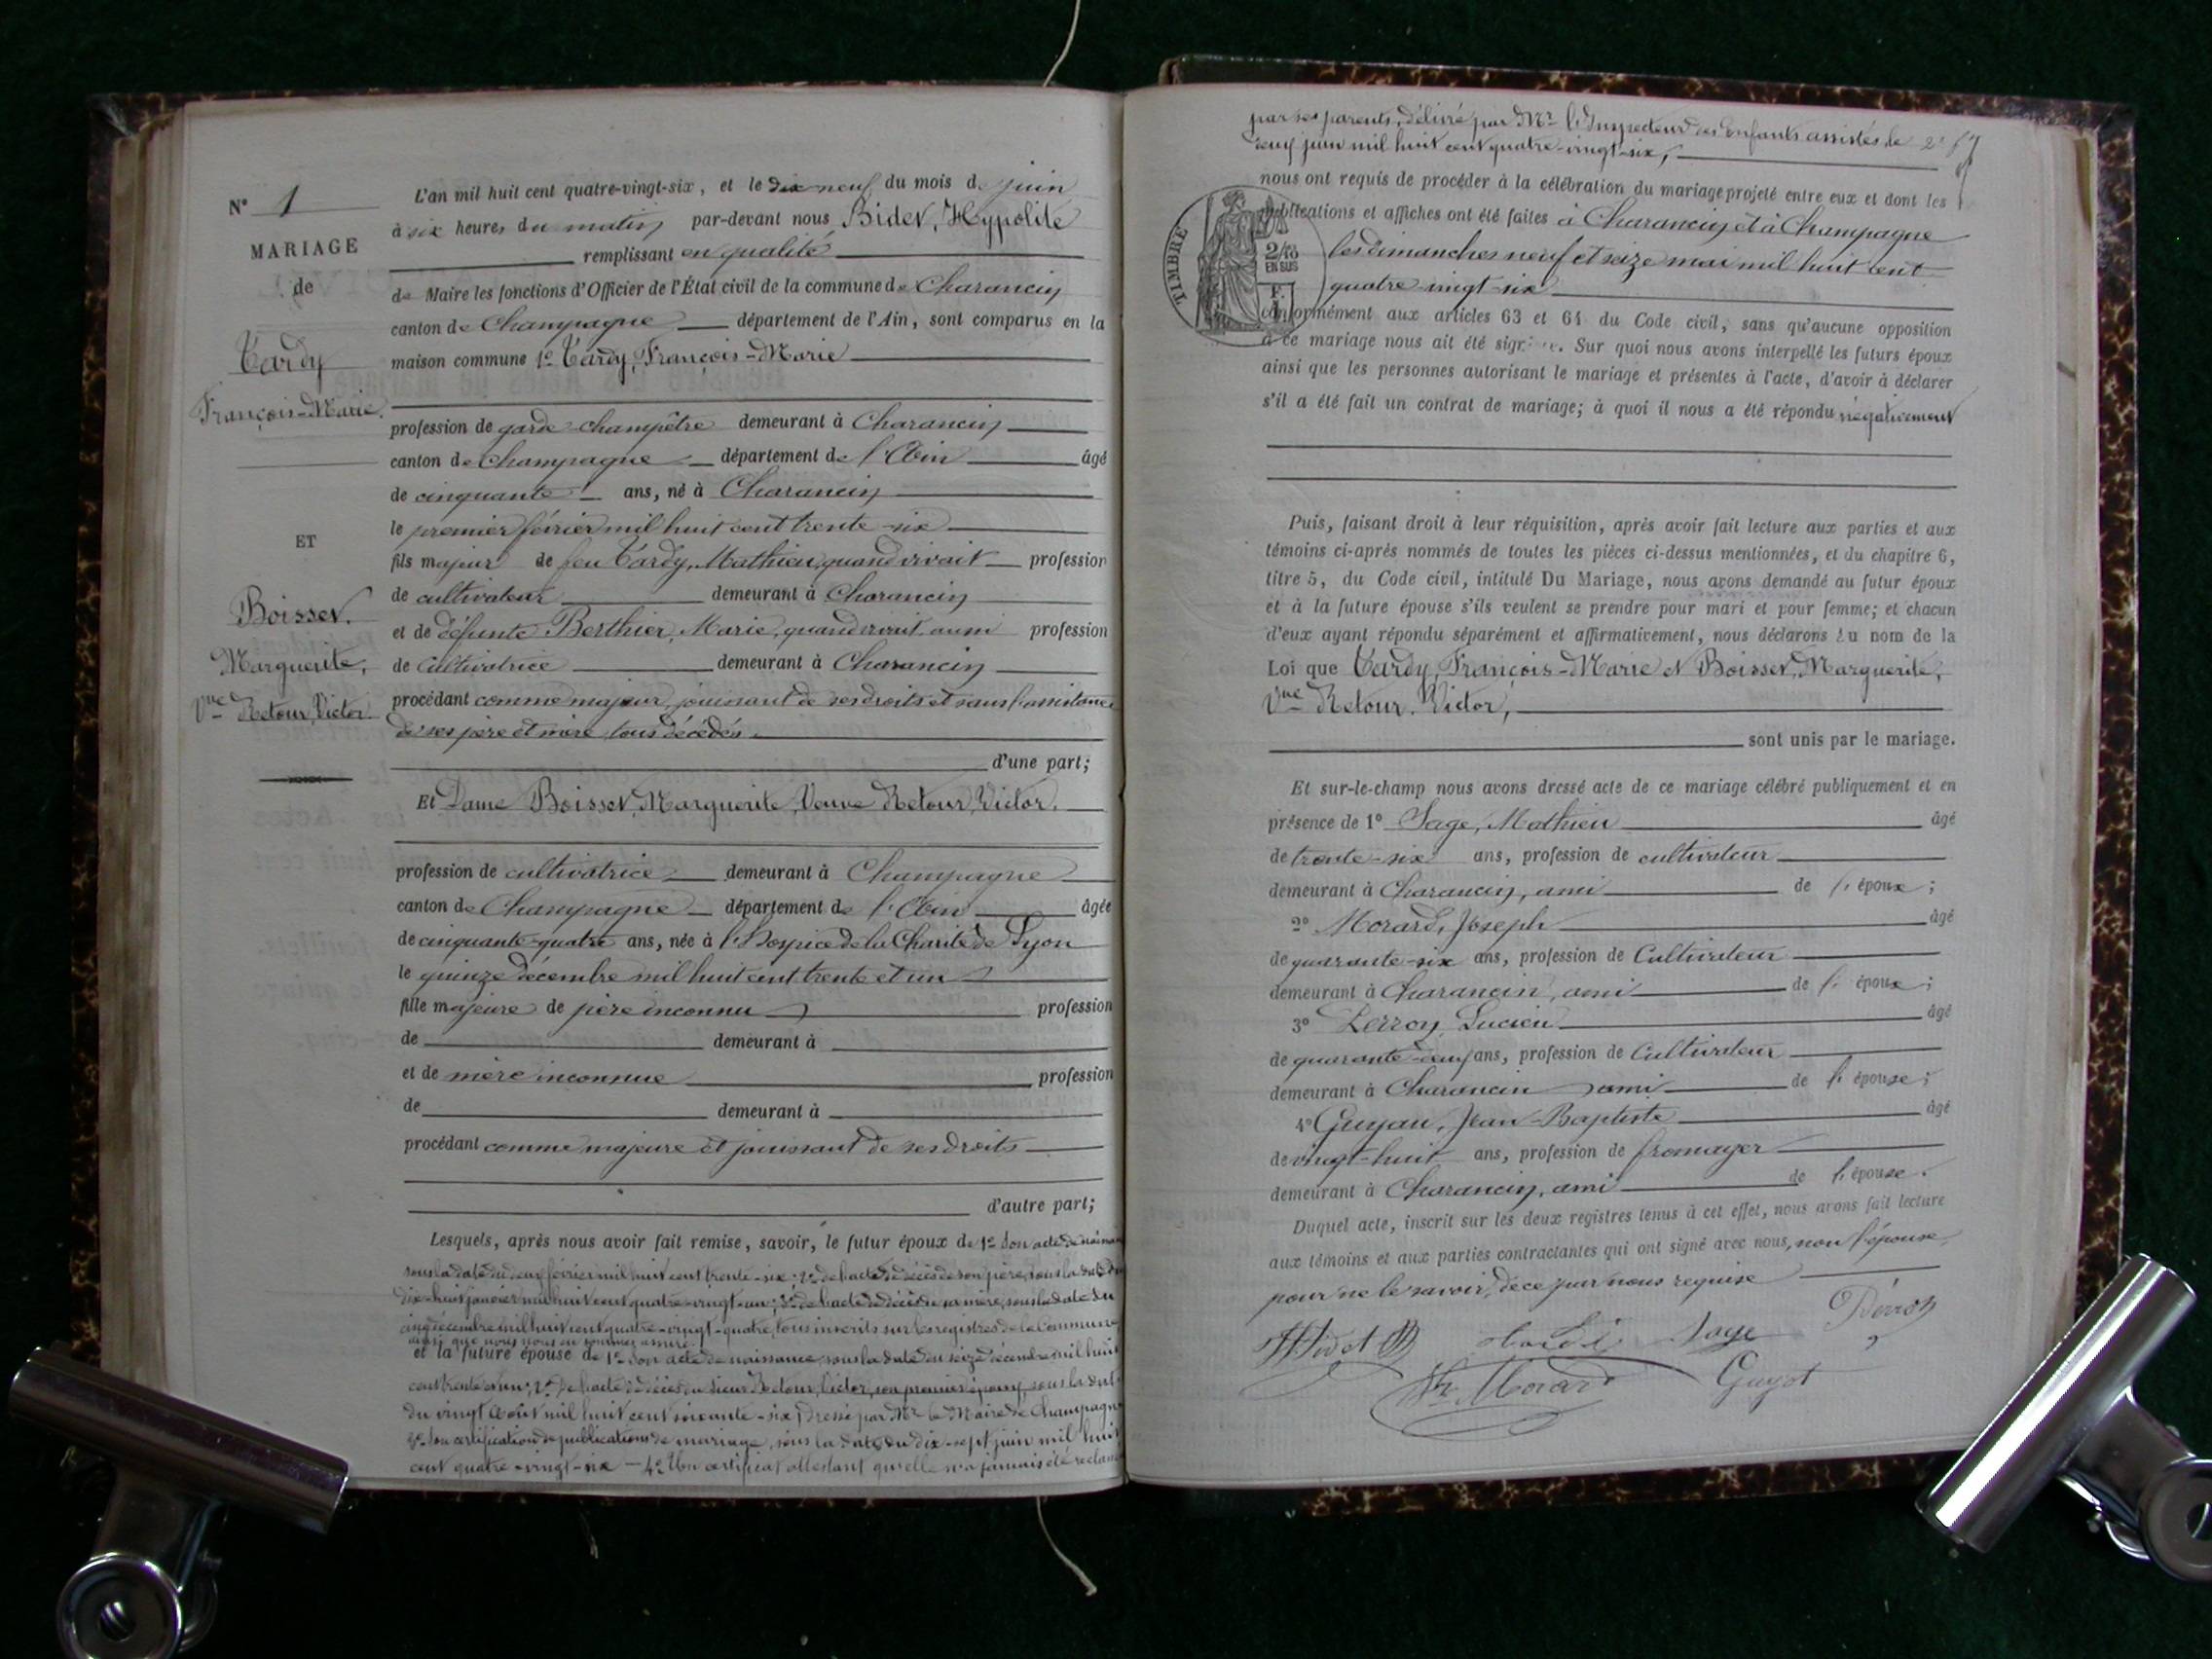 N° 1
MARIAGE
de
Tardy
François-Marie.
ET
Boisset.
Marguerite,
Vve Retour, Victor
L'an mil huit cent quatre-vingt-six, et le dix neuf du mois de juin
à six heures du matin par-devant nous Bidet, Hyppolite
remplissant en qualité
de Maire les fonctions d'Officier de l'État civil de la commune de Charancin
canton de Champagne département de l'Ain, sont comparus en la
maison commune 1° Tardy, François-Marie
profession de garde-champêtre demeurant à Charancin
canton de Champagne département de l'Ain âgé
de cinquante ans, né à Charancin
le premier février mil huit cent trente-six
fils majeur de feu Tardy, Mathieu, quand vivait profession
de cultivateur demeurant à Charancin
et de défunte Berthier, Marie, quand vivait aussi profession
de cultivatrice demeurant à Charancin
procédant comme majeur, jouissant de ses droits et sans l'assistance
de ses père et mère, tous décédés
d'une part;
Et Dame Boisset, Marguerite, Veuve Retour, Victor.
profession de cultivatrice demeurant à Champagne
canton de Champagne département de l'Ain âgée
de cinquante-quatre ans, née à l'Hospice de la Charité de Lyon
le quinze décembre mil huit cent trente et un
fille majeure de père inconnu profession
de demeurant à
et de mère inconnue profession
de demeurant à
procédant comme majeure et jouissant de ses droits
d'autre part;
Lesquels, après nous avoir fait remise, savoir, le futur époux de 1° Son acte de naissance
sous la date du deux février mil huit cent trente-six; 2° de l'acte de décès de son père, sous la date du
dix-huit janvier mil huit cent quatre-vingt-un; 3° de l'acte de décès de sa mère, sous la date du
cinq décembre mil huit cent quatre-vingt-quatre, tous inscrits sur les registres de la Commune
ainsi que nous nous en sommes assuré.
et la future épouse de 1° Son acte de naissance, sous la date du seize décembre mil huit
cent trente et un; 2° De l'acte de décès du Sieur Retour, Victor, son premier époux, sous la date
du vingt août mil huit cent soixante-six, dressé par Mr le Maire de Champagne
3° Son certification de publications de mariage, sous la date du dix-sept juin mil huit
cent quatre-vingt-six — 4° Un certificat attestant qu'elle n'a jamais été réclamée
par ses parents, délivré par Mr l'Inspecteur des Enfants assistés, le
neuf juin mil huit cent quatre-vingt-six,
nous ont requis de procéder à la célébration du mariage projeté entre eux et dont les
publications et affiches ont été faites à Charancin et à Champagne
les dimanches neuf et seize mai mil huit cent
quatre vingt-six
TIMBRE
2/10
EN SUS
conformément aux articles 63 et 64 du Code civil, sans qu'aucune opposition
à ce mariage nous ait été signifiée. Sur quoi nous avons interpellé les futurs époux
ainsi que les personnes autorisant le mariage et présentes à l'acte, d'avoir à déclarer
s'il a été fait un contrat de mariage; à quoi il nous a été répondu négativement
Puis, faisant droit à leur réquisition, après avoir fait lecture aux parties et aux
témoins ci-après nommés de toutes les pièces ci-dessus mentionnées, et du chapitre 6,
titre 5, du Code civil, intitulé Du Mariage, nous avons demandé au futur époux
et à la future épouse s'ils veulent se prendre pour mari et pour femme; et chacun
d'eux ayant répondu séparément et affirmativement, nous déclarons au nom de la
Loi que Tardy, François-Marie et Boisset, Marguerite,
Vve Retour. Victor,
sont unis par le mariage.
Et sur-le-champ nous avons dressé acte de ce mariage célébré publiquement et en
présence de 1° Sage, Mathieu âgé
de trente-six ans, profession de cultivateur
demeurant à Charancin, ami de l'époux;
2° Morard, Joseph âgé
de quarante-six ans, profession de Cultivateur
demeurant à Charancin, ami de l'époux;
3° Perron, Lucien âgé
de quarante-neuf ans, profession de Cultivateur
demeurant à Charancin, ami de l'épouse;
4° Guyau, Jean-Baptiste âgé
de vingt-huit ans, profession de fromager
demeurant à Charancin, ami de l'épouse.
Duquel acte, inscrit sur les deux registres tenus à cet effet, nous avons fait lecture
aux témoins et aux parties contractantes qui ont signé avec nous, non l'épouse,
pour ne le savoir, de ce par nous requise
Bidet H Tardi Sage Perron
Jh Morard Guyot